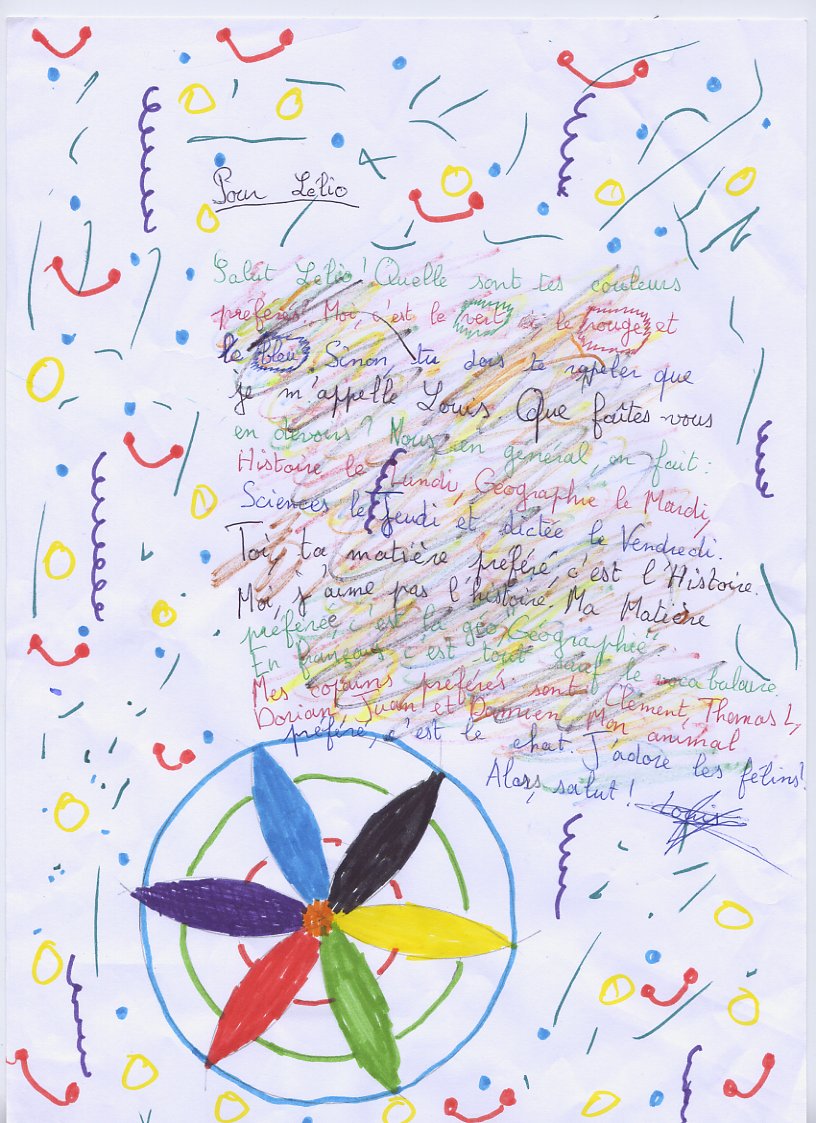 Pour Lélio
Salut Lélio ! Quelle sont tes couleurs
préférés. Moi, c'est le vert et le rouge et
le bleu. Sinon, tu dois te rappeler que
je m'appelle Louis. Que faîtes-vous
en devoirs ? Nous, en général, on fait :
Histoire le Lundi, Géographie le Mardi,
Sciences le Jeudi et dictée le Vendredi.
Toi, ta matière préféré, c'est l'Histoire.
Moi, j'aime pas l'histoire. Ma Matière
préférée, c'est la géo, Géographie.
En français c'est tout sauf le vocabulaire.
Mes copains préférés sont Clément, Thomas L,
Dorian, Juan et Damien. Mon animal
préféré, c'est le chat. J'adore les félins !
Alors, salut !
Louis